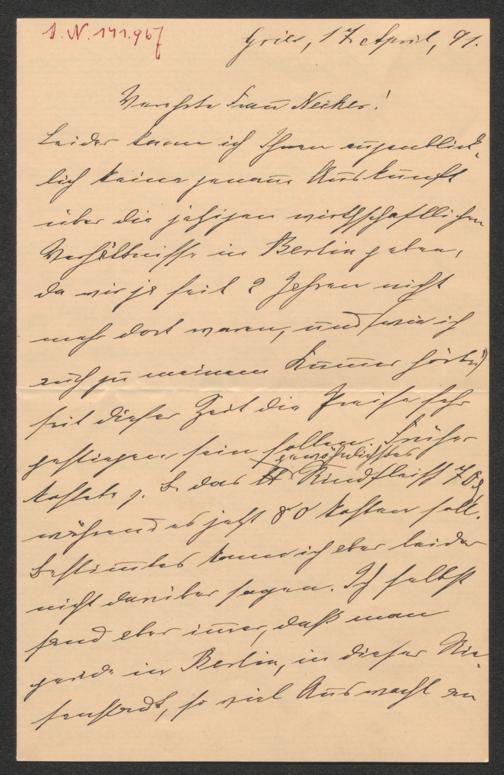 I. N. 141.967
Gries, 17 April, 91.
Verehrte Frau Necker!
Leider kann ich Ihnen augenblick-
lich keine genaue Auskunft
über die jetzigen wirthschaftlichen
Verhältnisse in Berlin geben,
da wir ja seit 2 Jahren nicht
mehr dort waren, und (wie ich
auch zu meinem Kummer hörte)
seit dieser Zeit die Preise sehr
gestiegen sein sollen. Früher
kostete z. B. das ℔ gewöhnliches Rindfleisch 70
während es jetzt 80 kosten soll.
Bestimmtes kann ich aber leider
nicht darüber sagen. Ich selbst
fand aber immer, daß man
gerade in Berlin, in dieser Rie-
senstadt, so viel Auswahl an